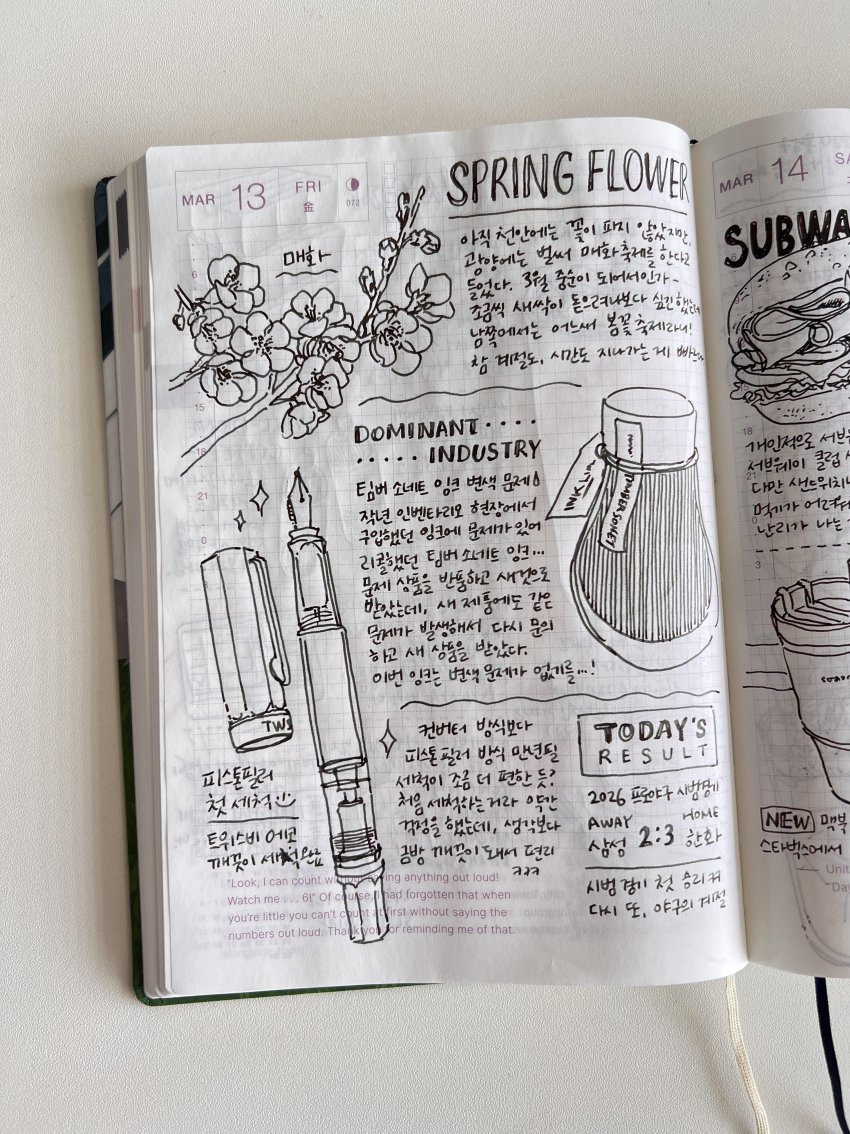 MAR 13 FRI
金
072
매화
SPRING FLOWER
아직 천안에는 꽃이 피지 않았지만,
광양에는 벌써 매화축제를 한다고
들었다. 3월 중순이 되어서인가-
조금씩 새싹이 돋으려나보다 싶긴했는데
남쪽에서는 어느새 봄꽃축제라니!
참 계절도, 시간도 지나가는게
DOMINANT ····
····· INDUSTRY
팀버 소네트 잉크 변색 문제
작년 인벤타리오 현장에서
구입했던 잉크에 문제가 있어
리콜했던 팀버 소네트 잉크...
문제 상품을 반품하고 새것으로
받았는데, 새 제품에도 같은
문제가 발생해서 다시 문의
하고 새 상품을 받았다.
이번 잉크는 변색 문제가 없기를...!
TIMBER SONET
TWS
피스톤필러
첫 세척
트위스비 에코
깨끗이 세척완료
컨버터 방식보다
피스톤 필러 방식 만년필
세척이 조금 더 편한 듯?
처음 세척하는거라 약간
걱정을 했는데, 생각보다
금방 깨끗이 돼서 편리
ㅋㅋㅋ
TODAY'S
RESULT
2026 프로야구 시범경기
AWAY HOME
삼성 2:3 한화
시범경기 첫 승리커
다시 또, 야구의 계절
"Look, I can count without saying anything out loud!
Watch me . . . 6!" Of course, I had forgotten that when
you're little you can't count at first without saying the
numbers out loud. Thank you for reminding me of that.
6
15
18
21
0
MAR 14 SA
SUBWA
개인적으로 서브
서브웨이 클럽
다만 샌드위치
먹기가 어려워
난리가 나는
18
21
0
3
NEW 맥북
스타벅스에서